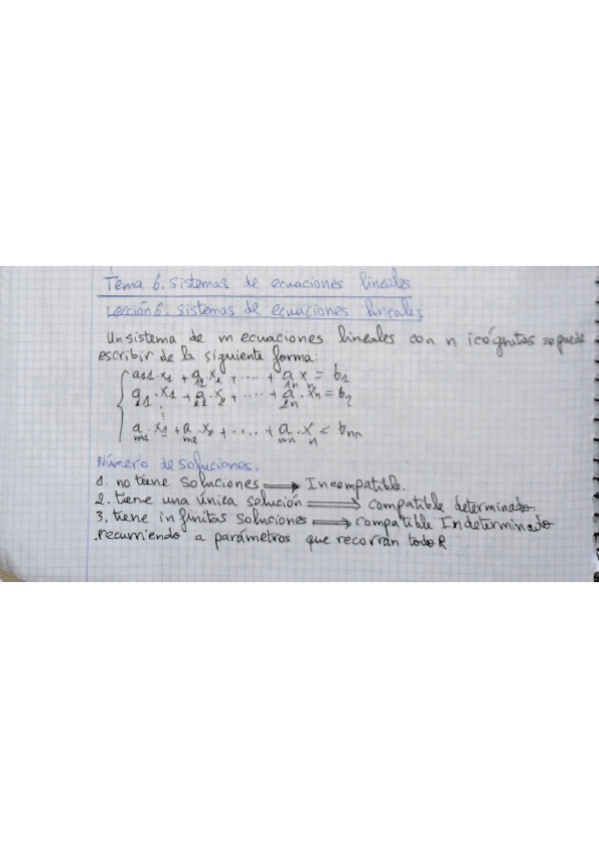 Tema 6. sistemas de ecuaciones lineales
Lección 6: sistemas de ecuaciones lineales
Un sistema de m ecuaciones lineales con n icógnitas se puede
escribir de la siguiente forma:
a11·x1 + a12·x2 + .... + a1n xn = b1
a21·x1 + a22·x2 + .... + a2n·xn = b2
⋮
am1·x1 + am2·x2 + .... + amn·xn = bm
Número de soluciones.
1. no tiene soluciones ⟹ Incompatible.
2. tiene una única solución ⟹ compatible determinado.
3. tiene infinitas soluciones ⟹ compatible Indeterminado
.recurriendo a parámetros que recorran todo R